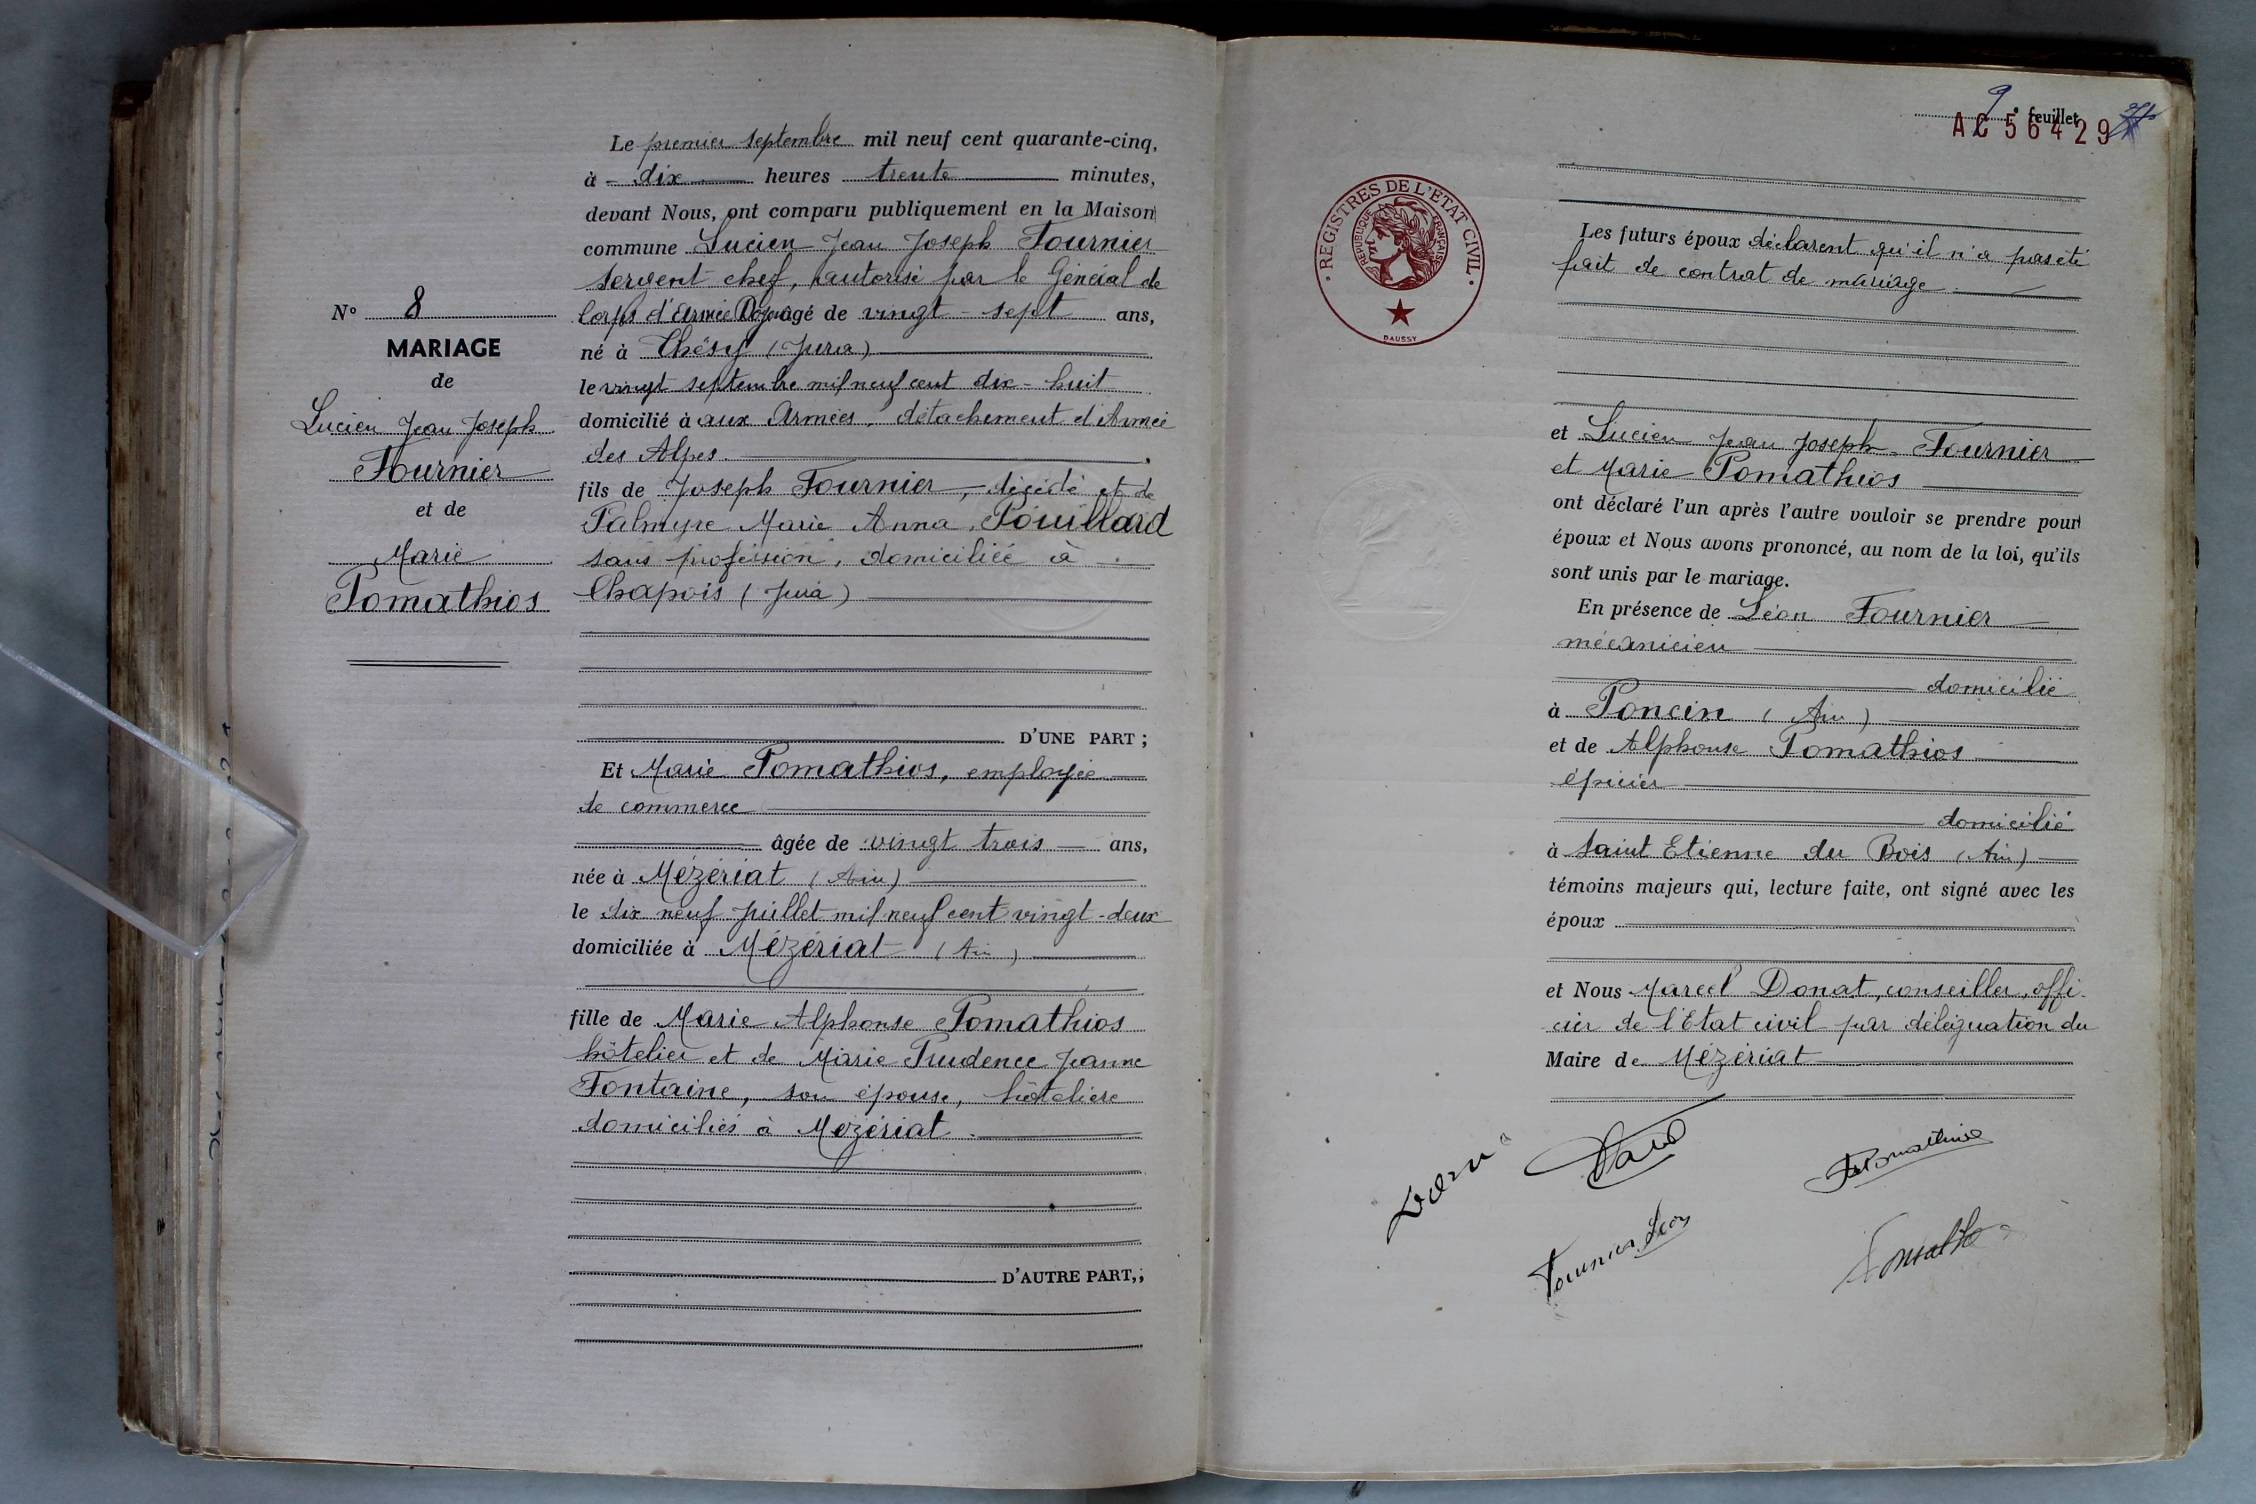 N° 8
MARIAGE
de
Lucien Jean Joseph
Fournier
et de
Marie
Pomathios
Le premier septembre mil neuf cent quarante-cinq,
à dix heures trente minutes,
devant Nous, ont comparu publiquement en la Maison
commune Lucien Jean Joseph Fournier
sergent chef, autorisé par le Général de
Corps d'Armée âgé de vingt-sept ans,
né à Chésy (Jura)
le vingt septembre mil neuf cent dix-huit
domicilié à aux Armées, détachement d'Armée
des Alpes.
fils de Joseph Fournier, décédé et de
Palmyre Marie Anna Pouillard
sans profession, domiciliée à
Chapois (Jura)
D'UNE PART ;
Et Marie Pomathios, employée
de commerce
âgée de vingt trois ans,
née à Mézériat (Ain)
le dix neuf juillet mil neuf cent vingt-deux
domiciliée à Mézériat (Ain)
fille de Marie Alphonse Pomathios
hôtelier et de Marie Prudence Jeanne
Fontaine, son épouse, hôtelière
domiciliés à Mézériat.
D'AUTRE PART,;
9 e feuillet
AC 56429
REGISTRES DE L'ETAT CIVIL
REPUBLIQUE FRANÇAISE
DAUSSY
Les futurs époux déclarent qu'il n'a pas été
fait de contrat de mariage.
et Lucien Jean Joseph Fournier
et Marie Pomathios
ont déclaré l'un après l'autre vouloir se prendre pour
époux et Nous avons prononcé, au nom de la loi, qu'ils
sont unis par le mariage.
En présence de Léon Fournier
mécanicien
domicilié
à Poncin (Ain)
et de Alphonse Pomathios
épicier
domicilié
à Saint Etienne du Bois (Ain)
témoins majeurs qui, lecture faite, ont signé avec les
époux
et Nous Marcel Donat, conseiller, offi-
cier de l'Etat civil par délégation du
Maire de Mézériat
Pomathios
Fournier Léon